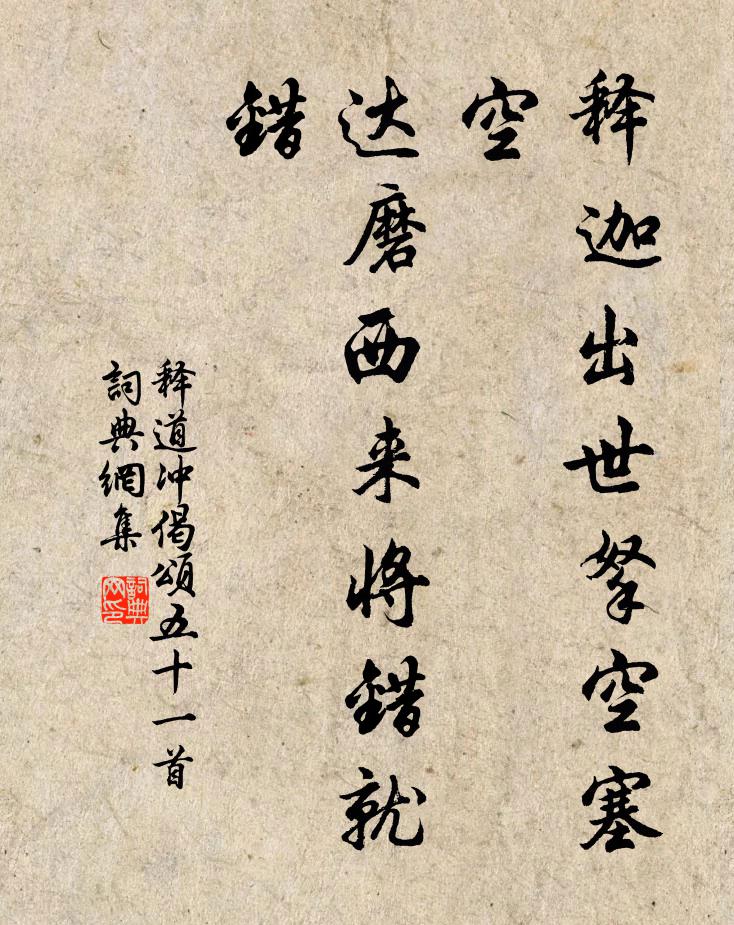 释迦出世拏空塞
空
达磨西来将錯就
錯
释道冲偈頌五十一首
詞典網集
詞典网印